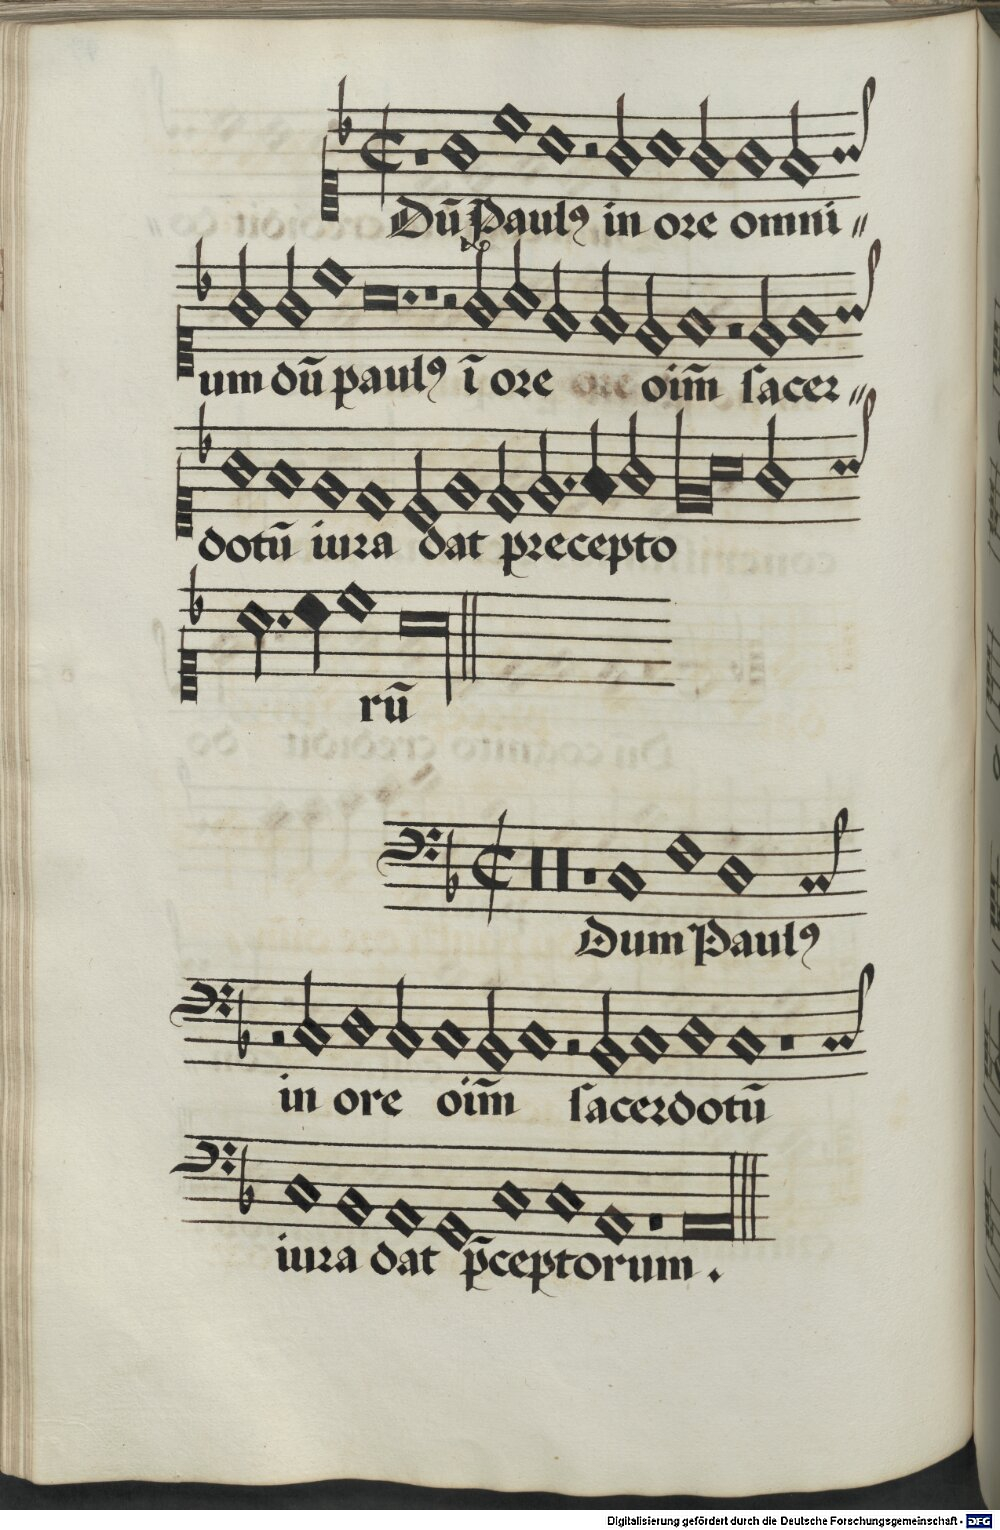 Dū Paulꝰ in ore omni〃
um dū paulꝰ ī ore oīm̄ ſacer〃
dotū iura dat precepto
rū
Dum Paulꝰ
in ore oīm̄ ſacerdotū
iura dat p̄ceptorum .
Digitalisierung gefördert durch die Deutsche Forschungsgemeinschaft - DFG